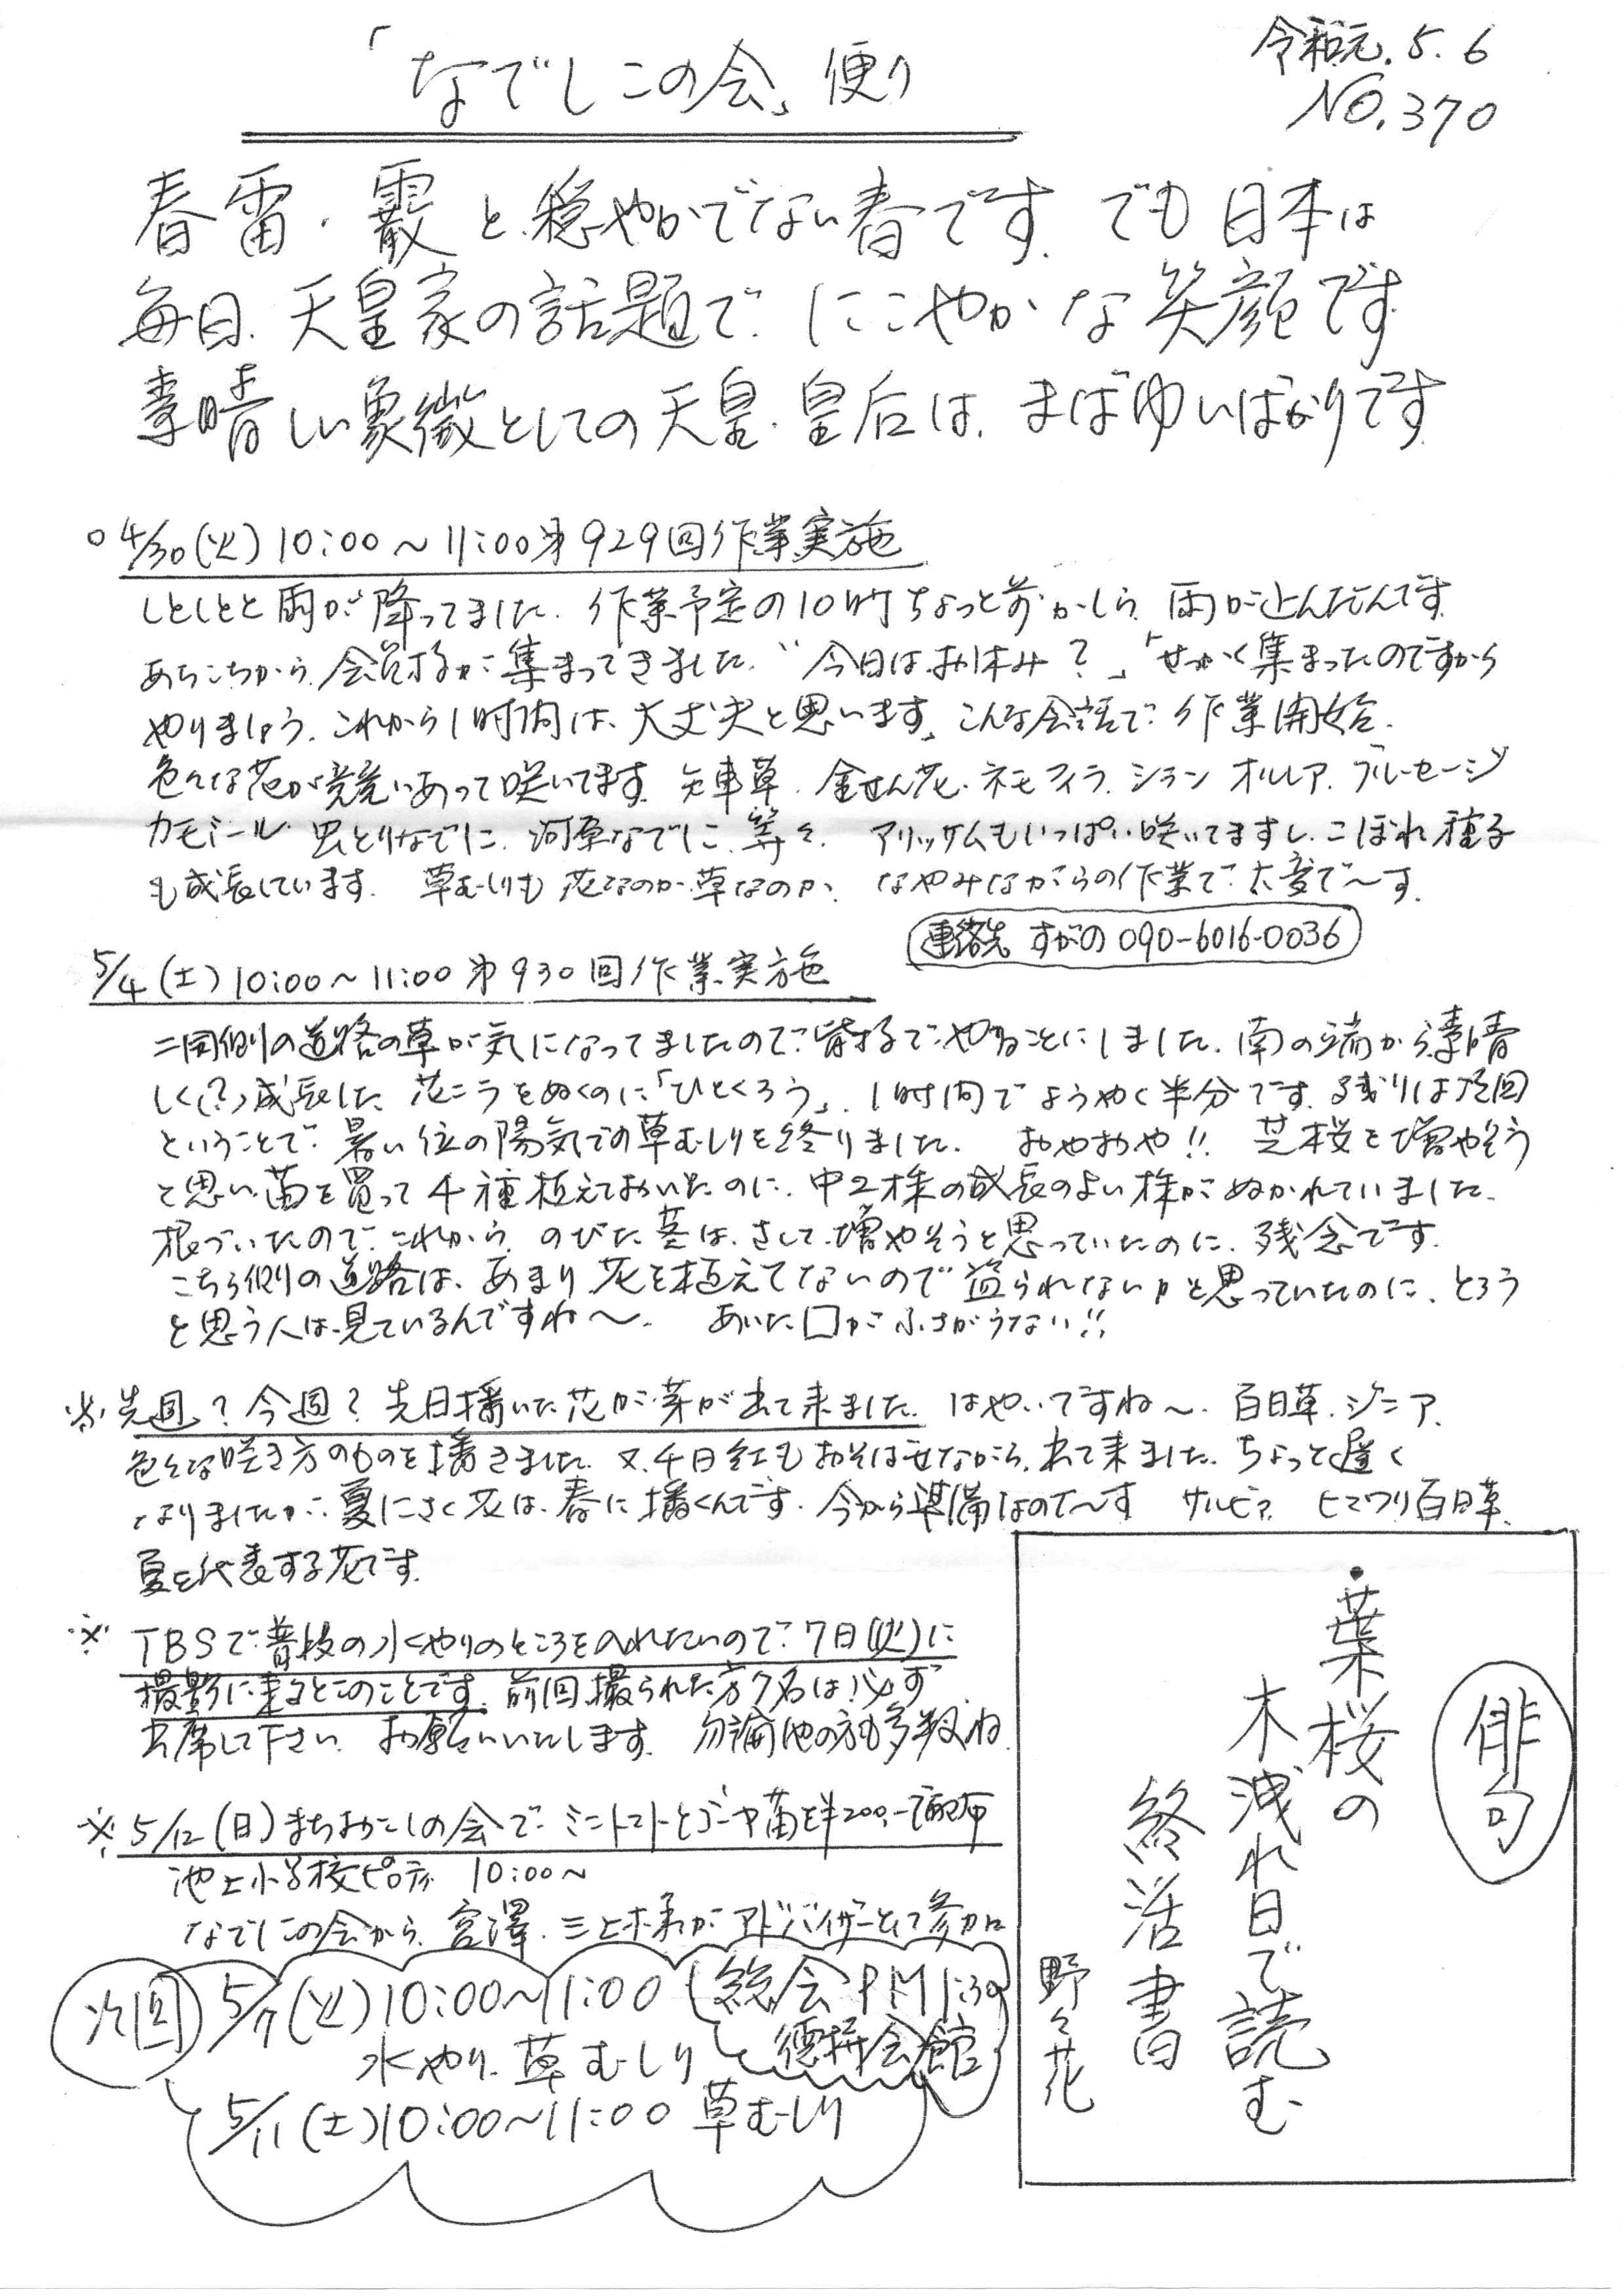 「なでしこの会」便り
令和元.5.6
NO.370
春雷・霰と穏やかでない春です。でも日本は
毎日、天皇家の話題で、にこやかな笑顔です
素晴しい象徴としての天皇・皇后は、まばゆいばかりです。
○4/30(火)10:00～11:00 第929回作業実施
しとしとと雨が降ってました。作業予定の10時ちょっと前かしら、雨が止んだんです。
あちこちから、会員様が集まってきました。「今日はお休み?」「せっかく集まったのですから
やりましょう。これから1時間は、大丈夫と思います」こんな会話で、作業開始。
色々な花が競いあって咲いてます。矢車草、金せん花、ネモフィラ、シラン、オルレア、ブルーセージ
カモミール、虫とりなでしこ、河原なでしこ、等々、アリッサムもいっぱい咲いてますし、こぼれ種子
も成長しています。草むしりも花なのか草なのか、なやみながらの作業で、大変で～す。
連絡先 すがの 090-6016-0036
5/4(土)10:00～11:00 第930回作業実施
二国側の道路の草が気になってましたので、皆様でやることにしました。南の端から素晴
しく(?)成長した花ニラをぬくのに「ひとくろう」。1時間でようやく半分です。残りは次回
ということで、暑い位の陽気での草むしりを終りました。おやおや!! 芝桜を増やそう
と思い、苗を買って4種植えておいたのに、中2株の成長のよい株がぬかれていました。
根づいたので、これから、のびた茎は、さして、増やそうと思っていたのに、残念です。
こちら側の道路は、あまり花を植えてないので盗られないかと思っていたのに、とろう
と思う人は、見ているんですね～。あいた口がふさがらない!!
※先週?今週?先日播いた花が、芽が出て来ました。はやいですね～。百日草、ジニア、
色々な咲き方のものを播きました。又、千日紅もおそばせながら、出て来ました。ちょっと遅く
なりましたが、夏にさく花は、春に播くんです。今から準備なので～す サルビア、ヒマワリ百日草、
夏を代表する花です。
※TBSで普段の水やりのところを入れたいので、7日(火)に
撮影に来るとのことです。前回撮られた方7名は必ず
出席して下さい。お願いいたします。勿論他の方も多数ね。
※5/12(日)まちおこしの会で、ミニトマトとゴーヤ苗を¥200.-で配布
池上小学校ピロティ 10:00～
なでしこの会から、宮澤、三上様がアドバイザーとして参加
次回 5/7(火)10:00～11:00
水やり、草むしり
総会PM1:30
徳持会館
5/11(土)10:00～11:00 草むしり
俳句
・葉桜の
木洩れ日で読む
終活書
野々花